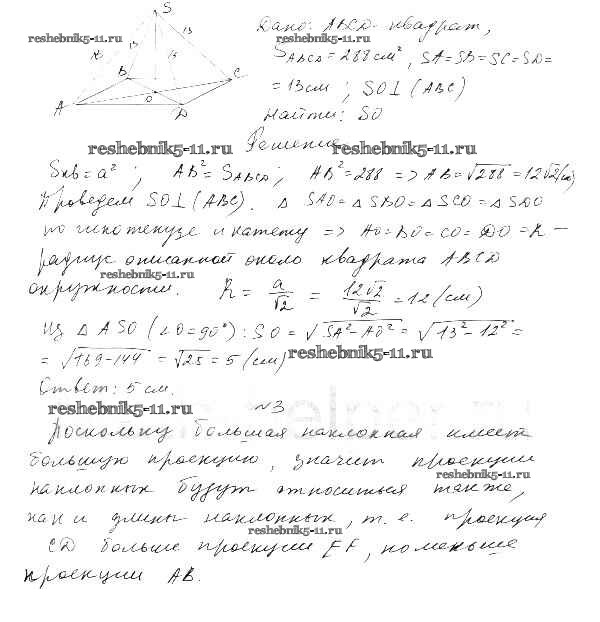 S
reshebnik5-11.ru
13
13
13
B
C
A
O
D
Дано: ABCD-квадрат,
S ABCD = 288 см², SA=SB=SC=SD=
= 13 см; SO⊥(ABC)
Найти: SO
reshebnik5-11.ru Решение reshebnik5-11.ru
Sкв = a²; AB² = S ABCD; AB² = 288 => AB = √288 = 12√2 (см)
Проведем SO⊥(ABC). Δ SAO = Δ SBO = Δ SCO = Δ SDO
по гипотенузе и катету => AO=BO=CO=DO=R –
радиус описанной около квадрата ABCD
reshebnik5-11.ru
окружности. R = a/√2 = 12√2/√2 = 12 (см)
Из Δ ASO (∠O=90°): SO = √SA²-AO² = √13²-12² =
= √169-144 = √25 = 5 (см) reshebnik5-11.ru
Ответ: 5 см.
reshebnik5-11.ru №3
Поскольку большая наклонная имеет
большую проекцию, значит проекции
reshebnik5-11.ru
наклонных будут относиться также,
как и длины наклонных, т.е. проекция
reshebnik5-11.ru
CD больше проекции EF, но меньше
проекции AB.